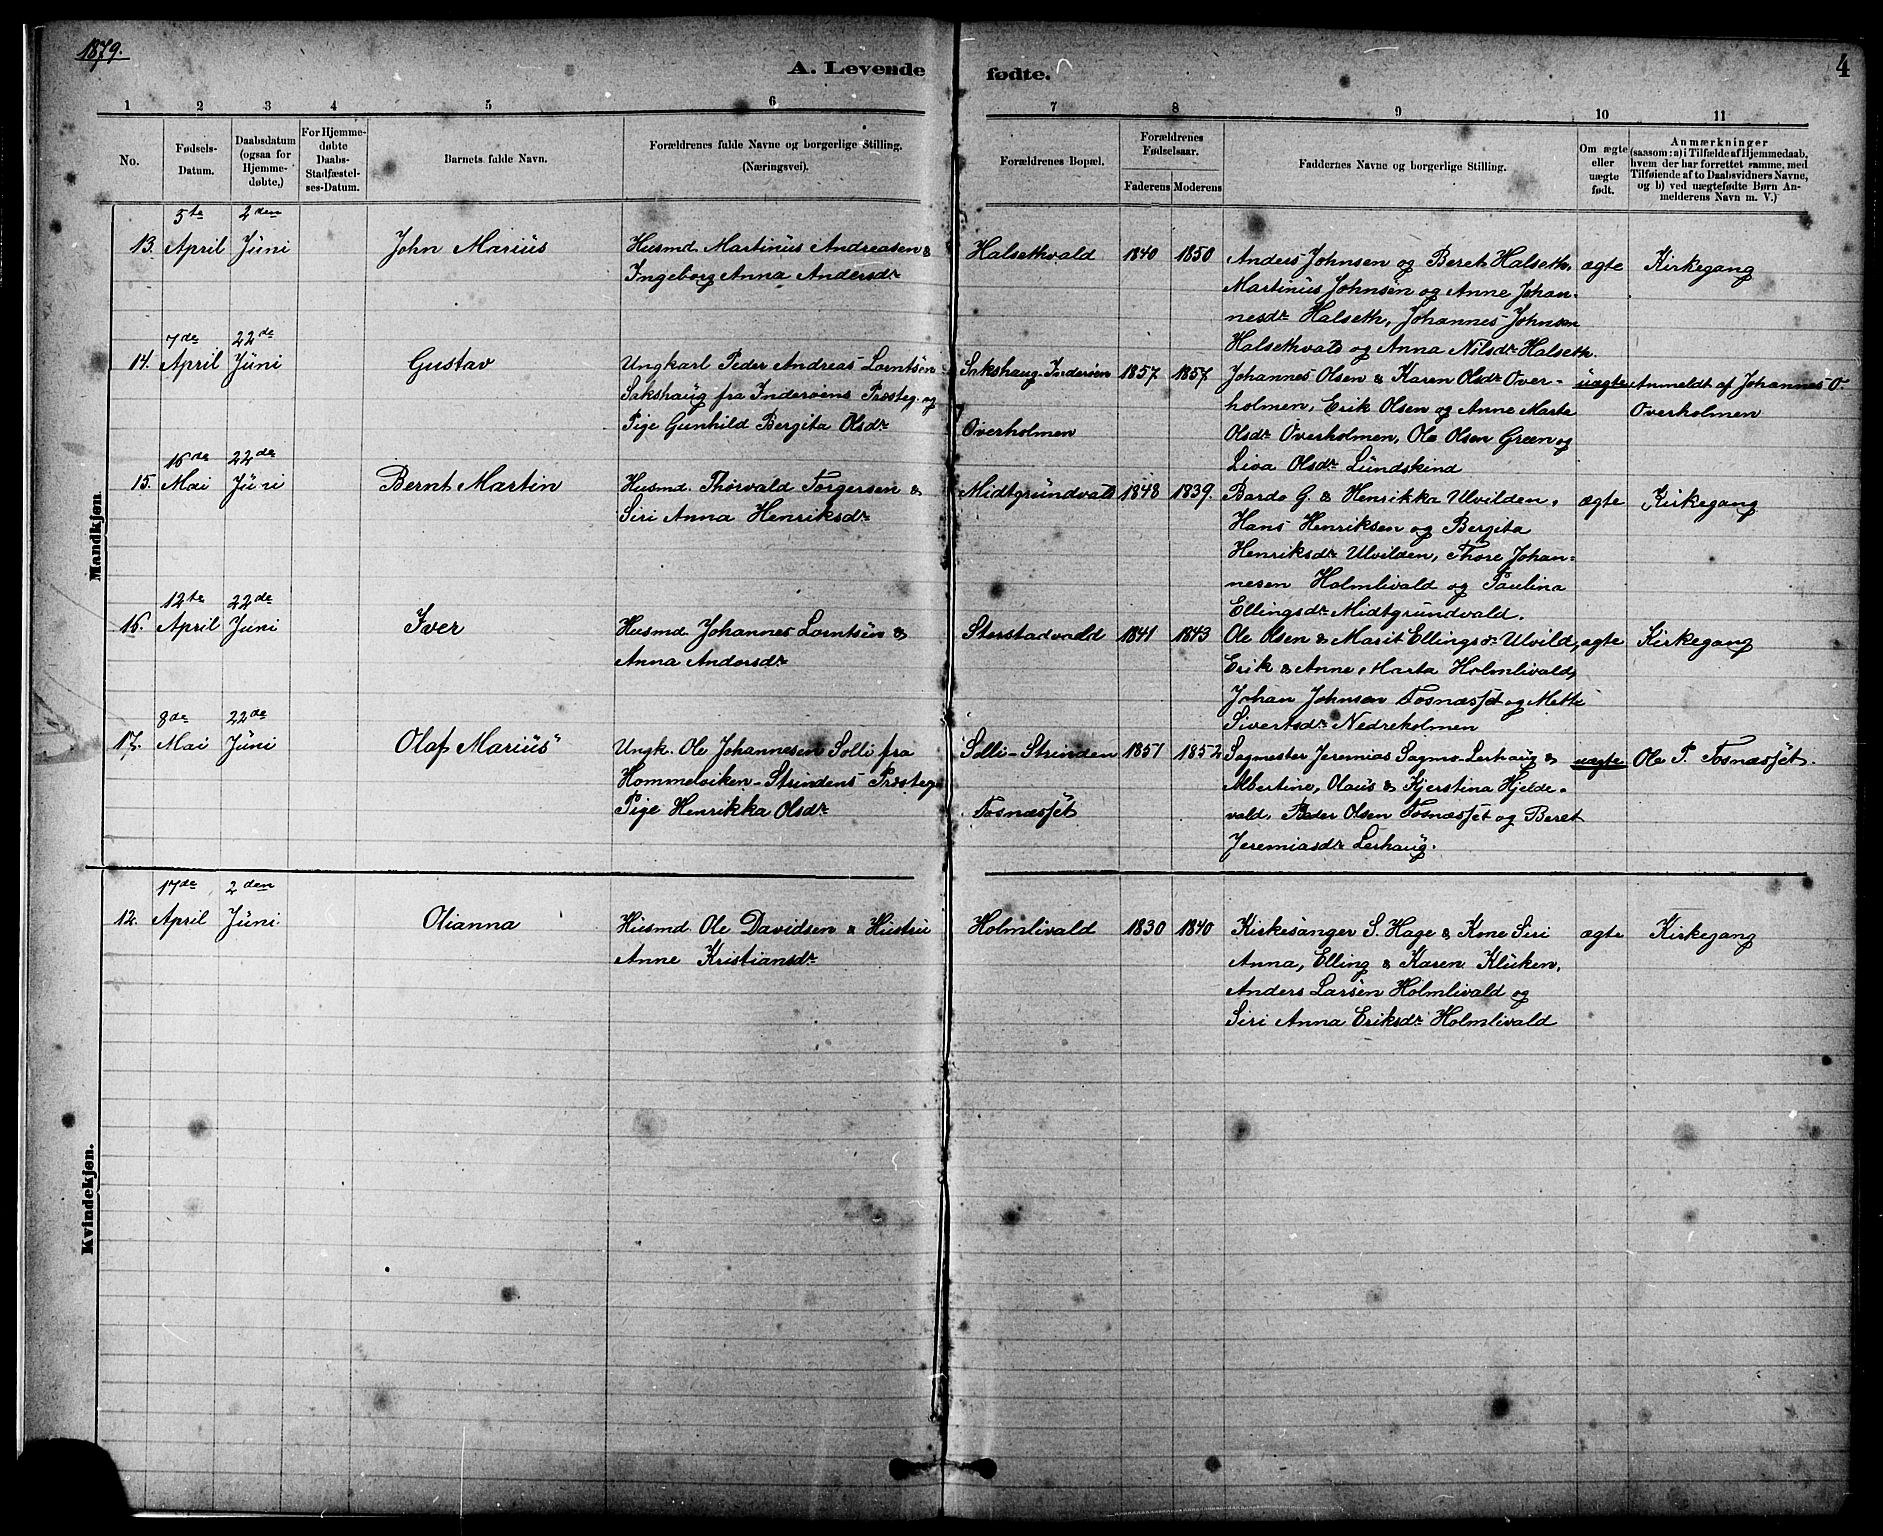 1879.
A. Levende fødte.
4
1 2 3 4 5 6 7 8 9 10 11
No.
Fødsels-
Datum.
Daabsdatum
(ogsaa for
Hjemme-
døbte.)
For Hjemme-
døbte
Daabs-
Stadfæstel-
ses-Datum.
Barnets fulde Navn.
Forældrenes fulde Navne og borgerlige Stilling.
(Næringsvei).
Forældrenes Bopæl.
Forældrenes
Fødselsaar.
Faderens Moderens
Faddernes Navne og borgerlige Stilling.
Om ægte
eller
uægte
født.
Anmærkninger
(saasom: a) i Tilfælde af Hjemmedaab,
hvem der har forrettet samme, med
Tilføiende af to Daabsvidners Navne,
og b) ved uægtefødte Børn An-
melderens Navn m. V.)
Mandkjøn.
5te 2den
13. April Juni John Marius Husmd Martinus Andreasen & Halsethvald 1840 1850 Anders Johnsen og Beret Halseth, ægte Kirkegang
Ingeborg Anna Andersdr Martinus Johnsen og Anne Johan-
nesdr Halseth, Johannes Johnsen
Halsethvald og Anna Nilsdr Halseth.
7de 22de
14. April Juni Gustav Ungkarl Peder Andreas Lorntsen Sakshaug-Inderøen 1857 1857 Johannes Olsen & Karen Olsdr Over- uægte Anmeldt af Johannes O.
Sakshaug fra Inderøens Præsteg. og holmen, Erik Olsen og Anne Marte Overholmen
Pige Gunhild Bergita Olsdr Overholmen Olsdr Overholmen, Ole Olsen Green og
Liva Olsdr Lundskind
16de 22de
15. Mai Juni Bernt Martin Husmd. Thorvald Torgersen & Midtgrundvald 1848 1839. Bardo G. & Henrikka Ulvilden, ægte Kirkegang
Siri Anna Henriksdr Hans Henriksen og Bergita
Henriksdr Ulvilden, Thore Johan-
nesen Holmlivald og Paulina
Ellingsdr Midtgrundvald.
12te 22de
16. April Juni Iver Husmd Johannes Lorntsen & Storstadvald 1841 1843 Ole Olsen & Marit Ellingsdr Ulvild, ægte Kirkegang
Anna Andersdr Erik & Anne Marta Holmlivald,
Johan Johnsen Tosnæsset og Mette
Sivertsdr Nedreholmen
8de 22de
17. Mai Juni Olaf Marius Ungk. Ole Johannesen Solli fra Solli-Strinden 1851 1852 Sagmester Jeremias Sagmo-Lerhaug & uægte Ole P. Tosnæsset.
Hommelviken-Strindens Præsteg Albertine, Olaus & Kjerstina Hjelde-
Pige Henrikka Olsdr Tosnæsset vald, Peder Olsen Tosnæsset og Beret
Jeremiasdr Lerhaug.
Kvindekjøn.
17de 2den
12. April Juni Olianna Husmd Ole Davidsen & Hustru Holmlivald 1830 1840 Kirkesanger S. Hage & Kone Siri ægte Kirkegang
Anne Kristiansdr Anna, Elling & Karen Kluken,
Anders Larsen Holmlivald og
Siri Anna Eriksdr Holmlivald